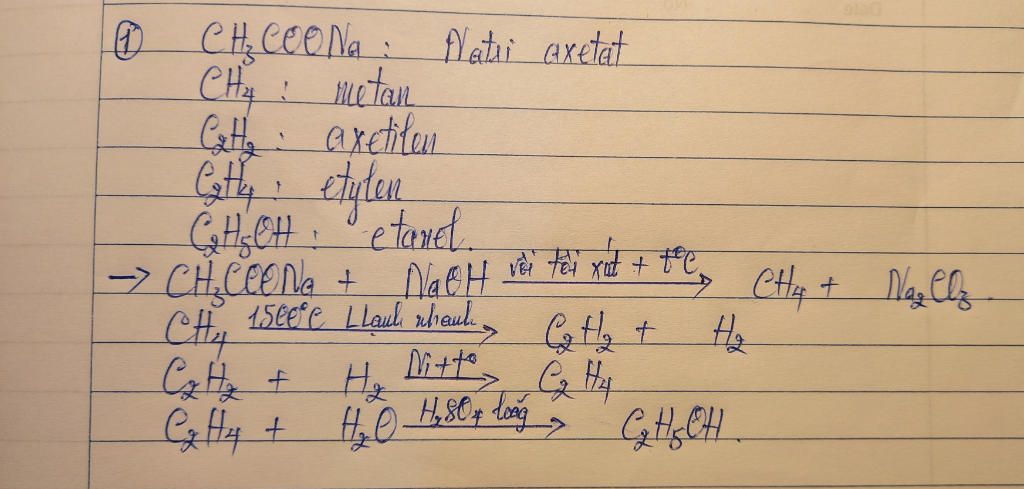 ① CH₃COONa : Natri axetat
CH₄ : metan
C₂H₂ : axetilen
C₂H₄ : etylen
C₂H₅OH : etanol.
→ CH₃COONa + NaOH vôi tôi xút + t°C → CH₄ + Na₂CO₃.
CH₄ 1500°C Llạnh nhanh → C₂H₂ + H₂
C₂H₂ + H₂ Ni + t° → C₂H₄
C₂H₄ + H₂O H₂SO₄ loãg → C₂H₅OH.